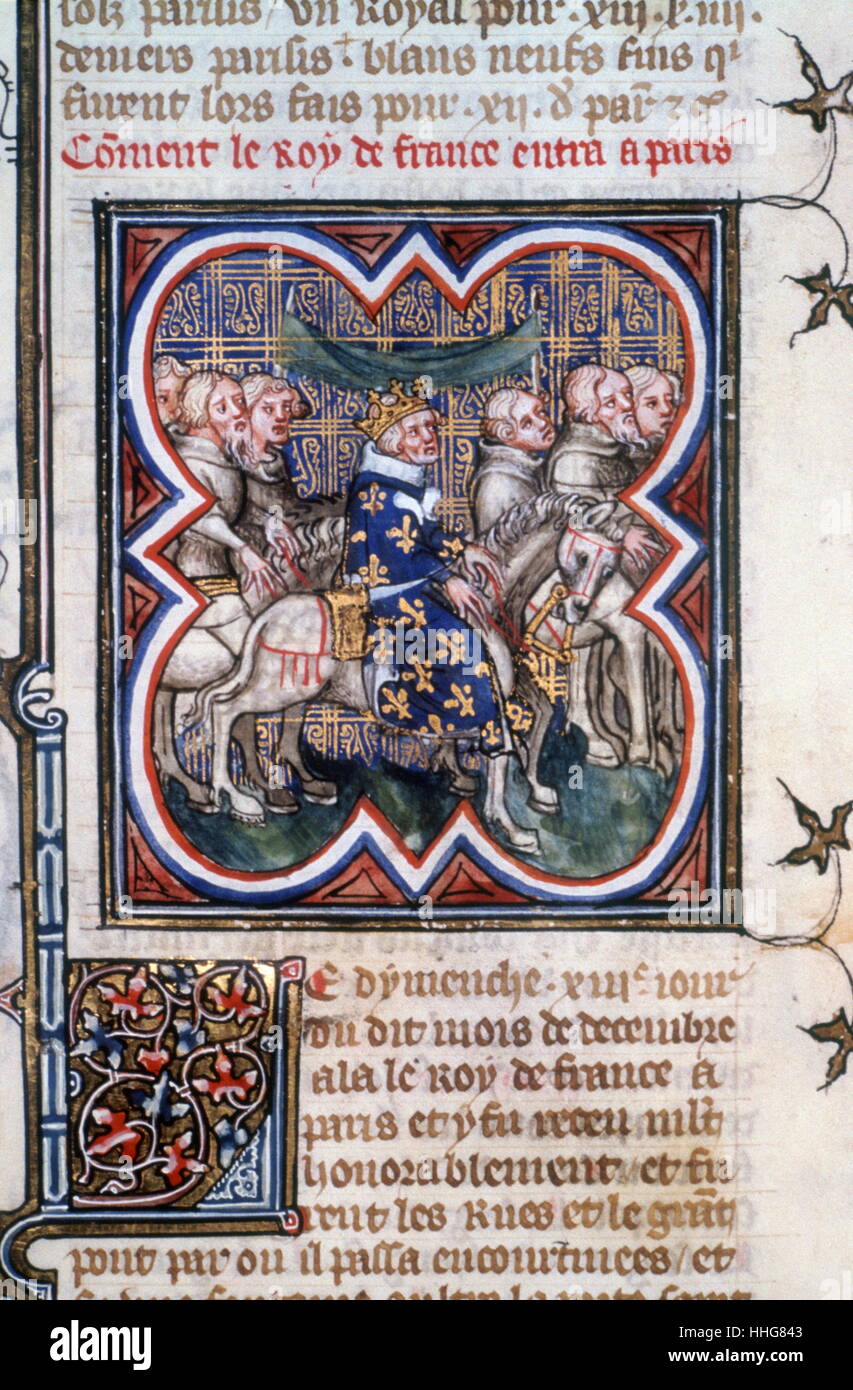 solz parisis / vn Royal pour . xiii . s . iiii .
deniers parisis . blans neufs fins qͥ
furent lors fais pour . xii . d̉ par̃ &c̃
Cõment le Roy de france entra a paris
LE dymenche . xiiiᵉ iour
du dit mois de decembre
ala le Roy de france a
paris et y fu receu mlt̃
honorablement / et fu
rent les Rues et le grãt
pont par ou il passa encourtinees / et
a
alamy
Image ID: HHG843
www.alamy.com